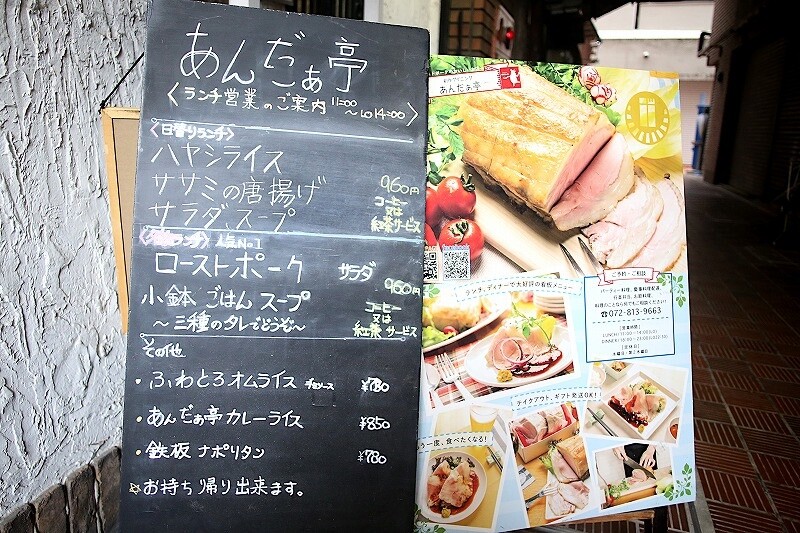 あんだぁ亭
〈ランチ営業のご案内 11:00～14:00〉
〈日替りランチ〉
ハヤシライス
ササミの唐揚げ 960円
サラダ、スープ コーヒー又は紅茶サービス
ランチ〉人気No1
ローストポーク サラダ 960円
小鉢 ごはん スープ コーヒー又は紅茶サービス
～三種のタレでどうぞ～
その他
・ふわとろオムライス ¥780
・あんだぁ亭カレーライス ¥850
・鉄板 ナポリタン ¥780
☆お持ち帰り出来ます。
あんだぁ亭
ランチ、ディナーで大好評の看板メニュー
ご予約・ご相談
☎072-813-9663
【営業時間】
【定休日】
テイクアウト、ギフト発送OK!
う一度、食べたくなる!